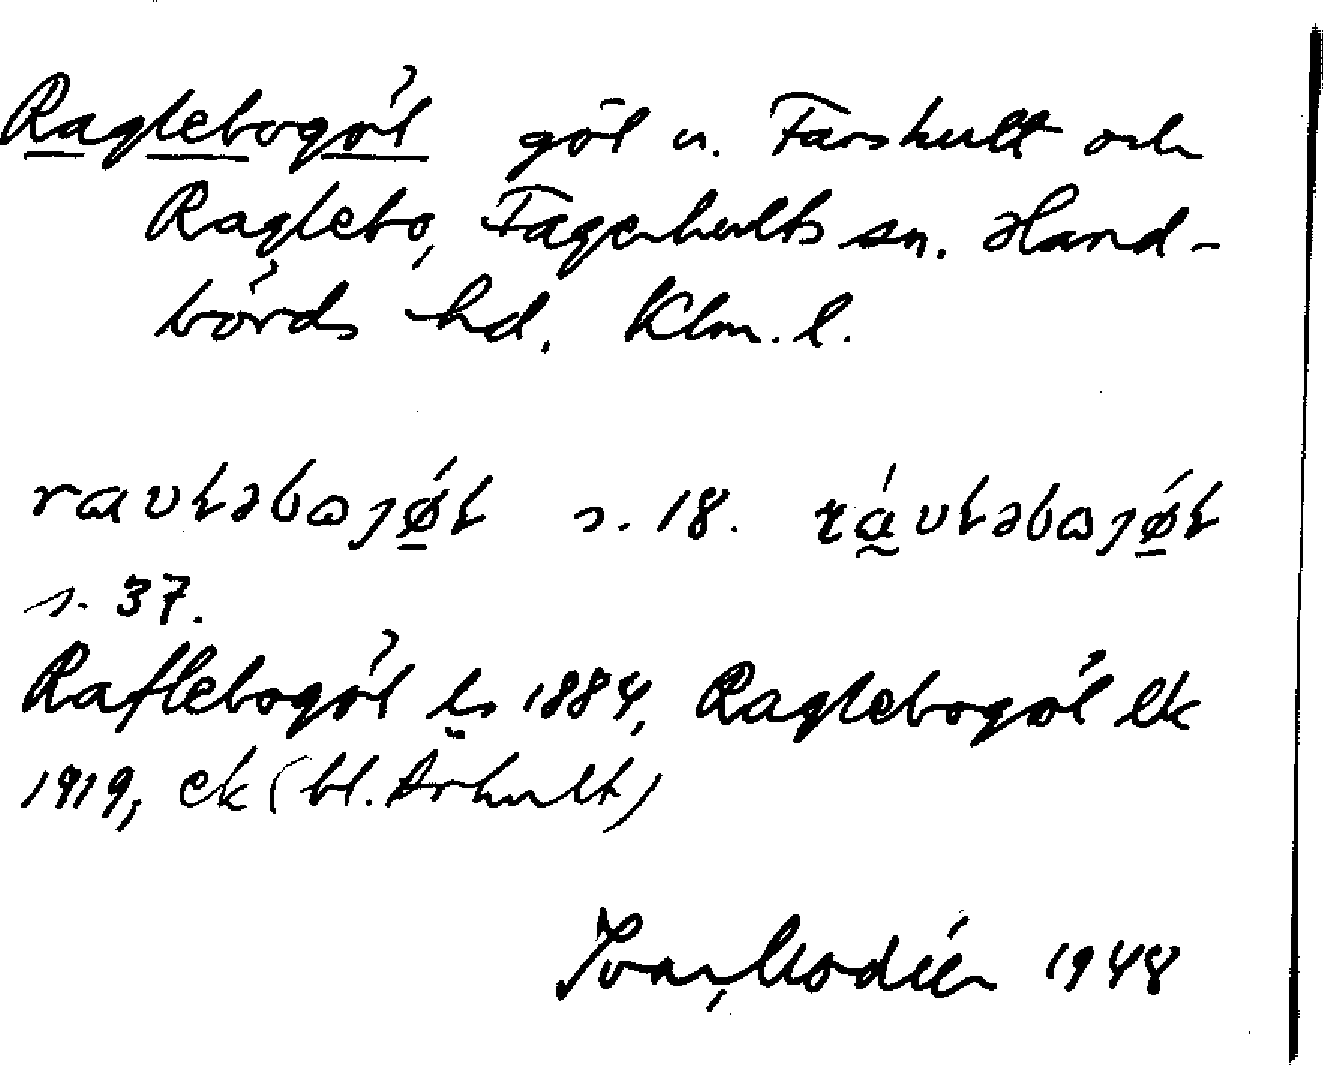 Raglebogöl göl u. Farshult och
Raglebo, Fagerhults sn. Hand-
börds hd. Klm. l.
s. 18.
s. 37.
Raflebogöl ls 1884, Raglebogöl ek
1919, ek (bl. Århult)
Ivar Modéer 1948